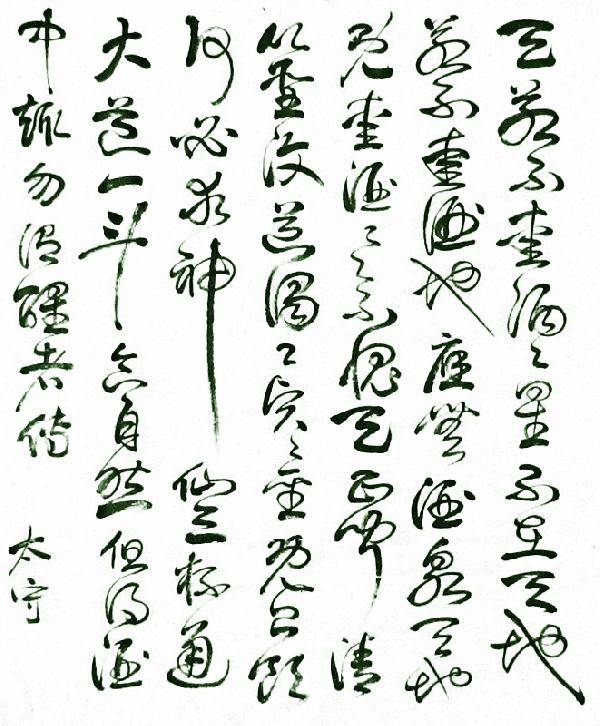 天若不愛酒〻星不在天地
若不愛酒地應無酒泉天地
既愛酒〻不愧天已聞清
比聖復道濁如賢〻聖既已飲
何必求神仙三杯通
大道一斗合自然但得酒
中趣勿謂醒者傳
太守